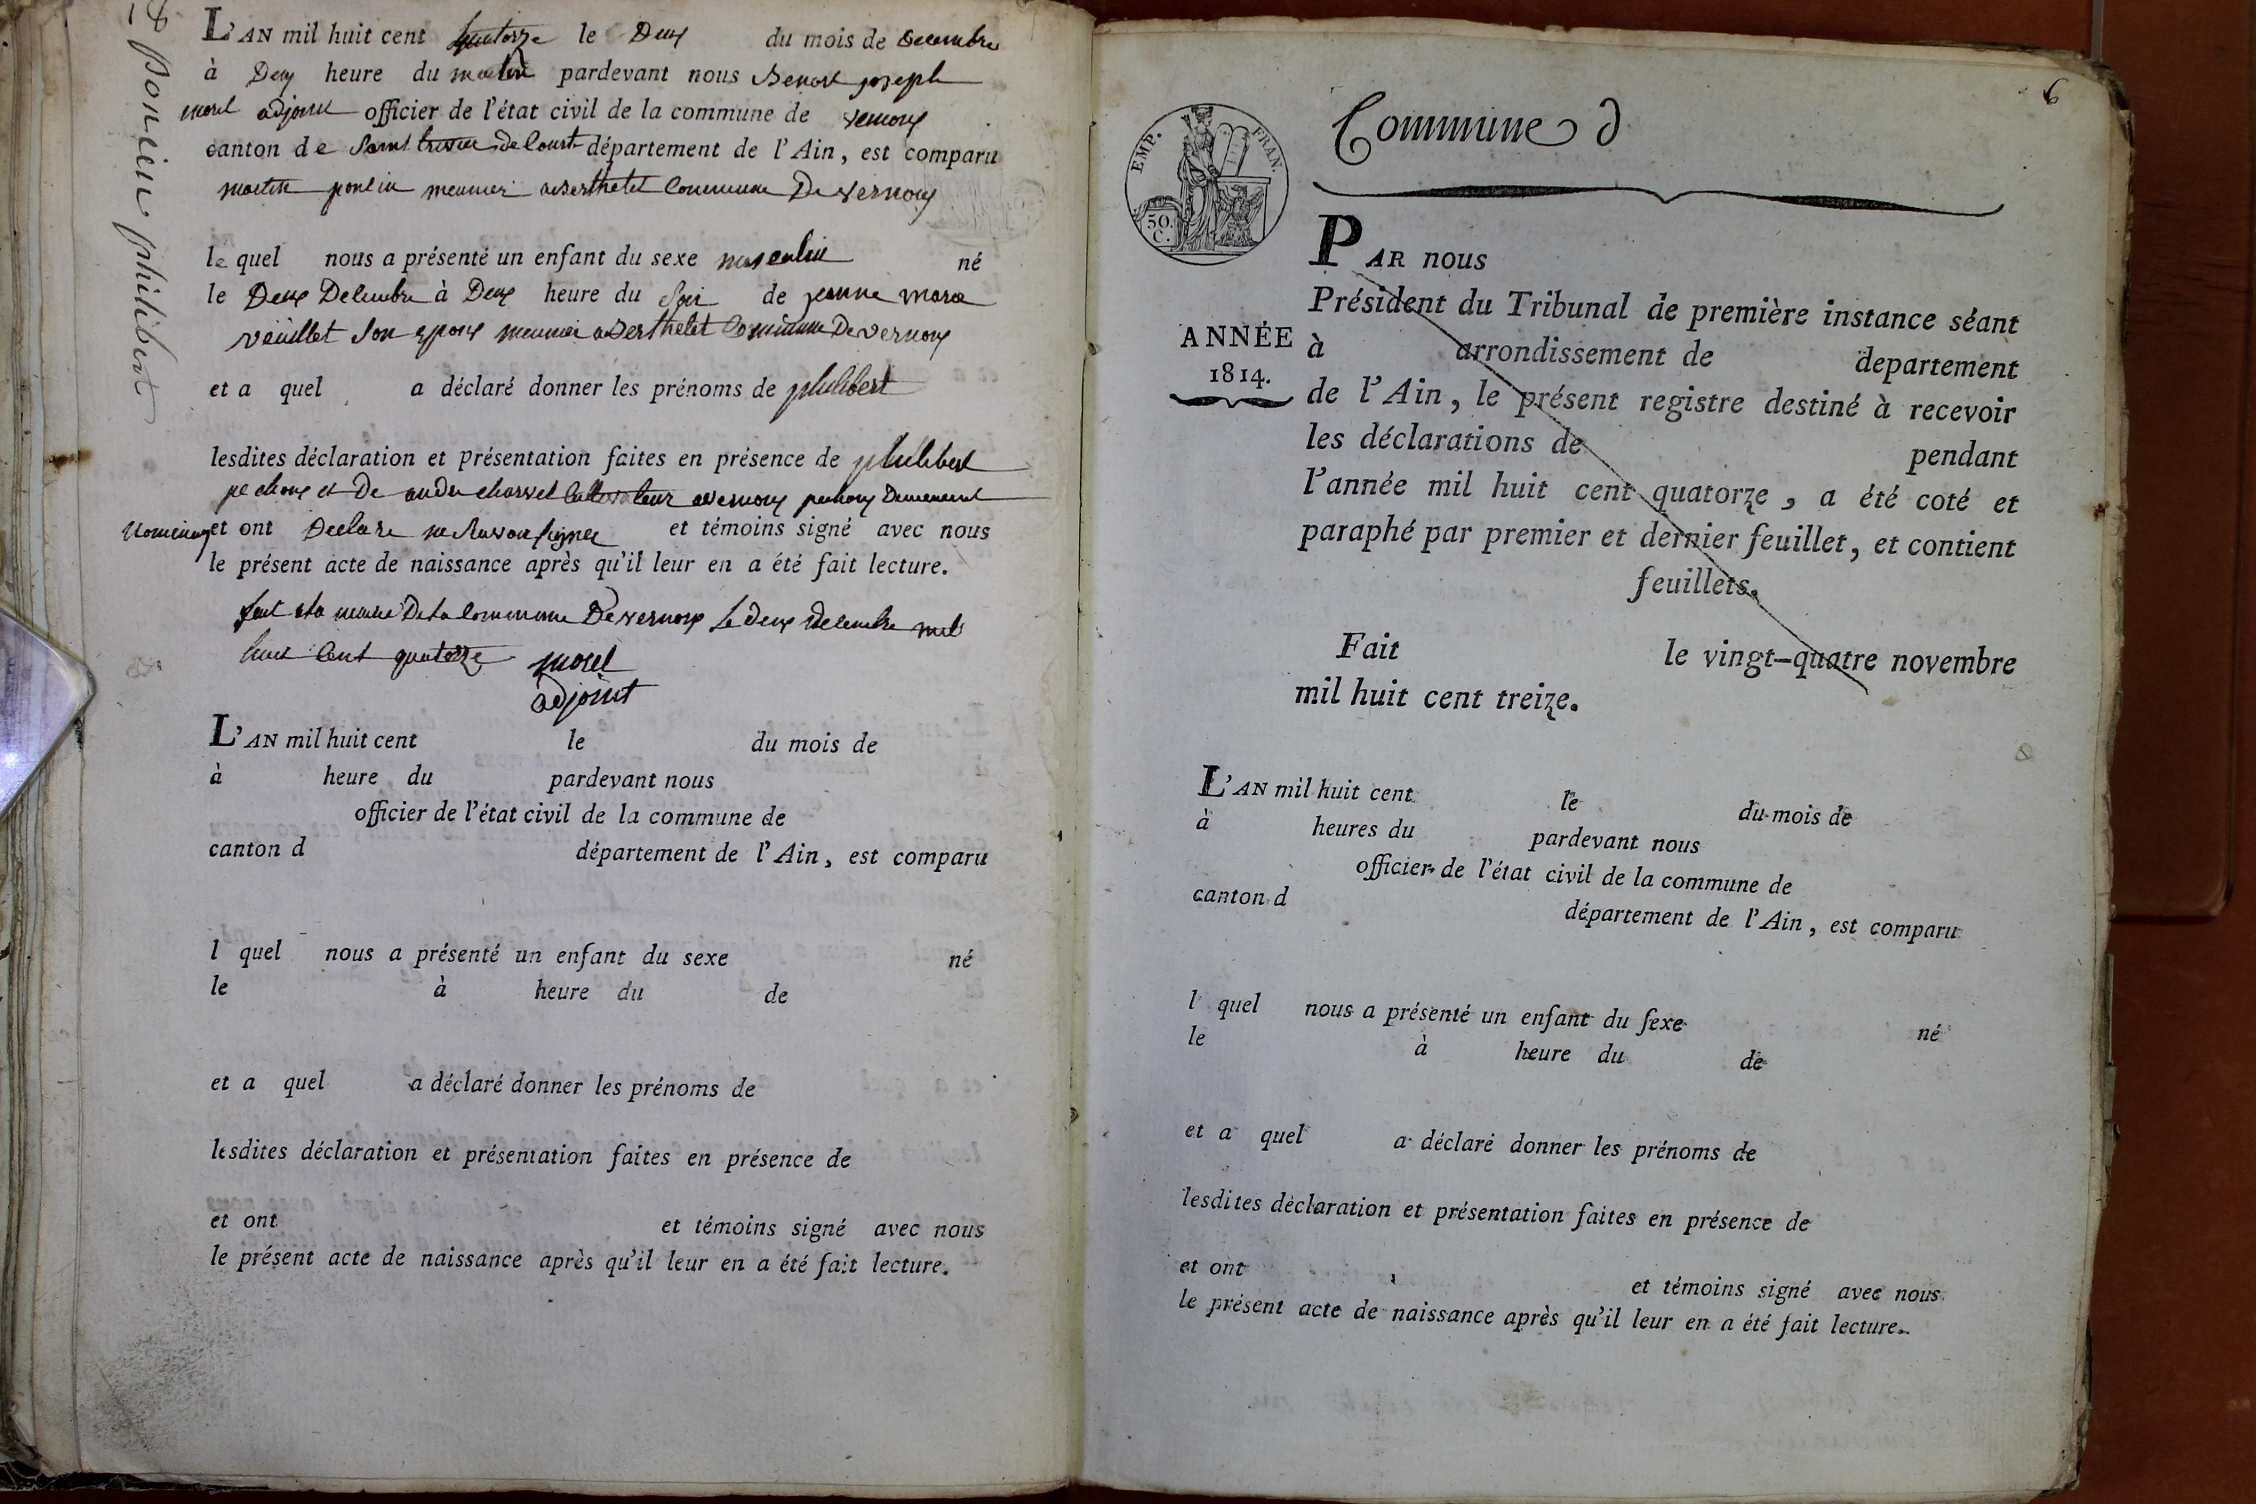 18
poncin philibert
L'AN mil huit cent quatorze le Deux du mois de Decembre
à Deux heure du matin pardevant nous Benoit joseph
morel adjoint officier de l'état civil de la commune de vernoux
canton de Saint trivier de Court département de l'Ain, est comparu
martin poncin meunier a Berthelet Commune De vernoux
le quel nous a présenté un enfant du sexe masculin né
le Deux Decembre à Deux heure du Soir de jeanne marie
veuillet Son epoux meunier a Berthelet Commune De vernoux
et a quel a déclaré donner les prénoms de philibert
lesdites déclaration et présentation faites en présence de philibert
pechoux et De andré charvet Cultivateur a vernoux pechoux Demeurant
et ont Declare ne Savoir signer et témoins signé avec nous
le présent acte de naissance après qu'il leur en a été fait lecture.
fait a la mairie De la Commune De vernoux Le deux decembre mil
huit Cent quatorze morel
adjoint
L'AN mil huit cent le du mois de
à heure du pardevant nous
officier de l'état civil de la commune de
canton d département de l'Ain, est comparu
l quel nous a présenté un enfant du sexe né
le à heure du de
et a quel a déclaré donner les prénoms de
lesdites déclaration et présentation faites en présence de
et ont et témoins signé avec nous
le présent acte de naissance après qu'il leur en a été fait lecture.
6
EMP. FRAN.
50.
C.
Commune d
ANNÉE
1814.
PAR nous
Président du Tribunal de première instance séant
à arrondissement de departement
de l'Ain, le présent registre destiné à recevoir
les déclarations de pendant
l'année mil huit cent quatorze, a été coté et
paraphé par premier et dernier feuillet, et contient
feuillets.
Fait le vingt-quatre novembre
mil huit cent treize.
L'AN mil huit cent le du mois de
à heures du pardevant nous
officier de l'état civil de la commune de
canton d département de l'Ain, est comparu
l quel nous a présenté un enfant du sexe né
le à heure du de
et a quel a déclaré donner les prénoms de
lesdites déclaration et présentation faites en présence de
et ont et témoins signé avec nous
le présent acte de naissance après qu'il leur en a été fait lecture.